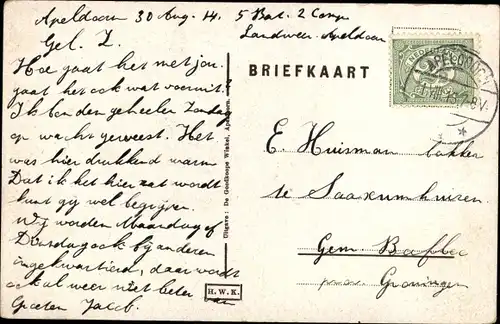 Apeldoorn 30 Aug. 14. 5 Bat. 2 Comp
Landweer Apeldoorn
Gel. Z.
Hoe gaat het met jou.
gaat het ook wat vooruit.
Ik ben den geheelen Zondag
op wacht geweest. Het
was hier drukkend warm
Dat ik het hier zat wordt
kunt gij wel begrijpen.
Wij worden Maandag of
Dinsdag ook bij anderen
ingekwartierd, daar wordt
ook al weer niet beter
Groeten Jacob.
Uitgave: De Goedkoope Winkel, Apeldoorn.
H.W.K.
BRIEFKAART
APELDOORN
E. Huisman bakker
te Saaxumhuizen
Gem. Baflo
prov. Groningen